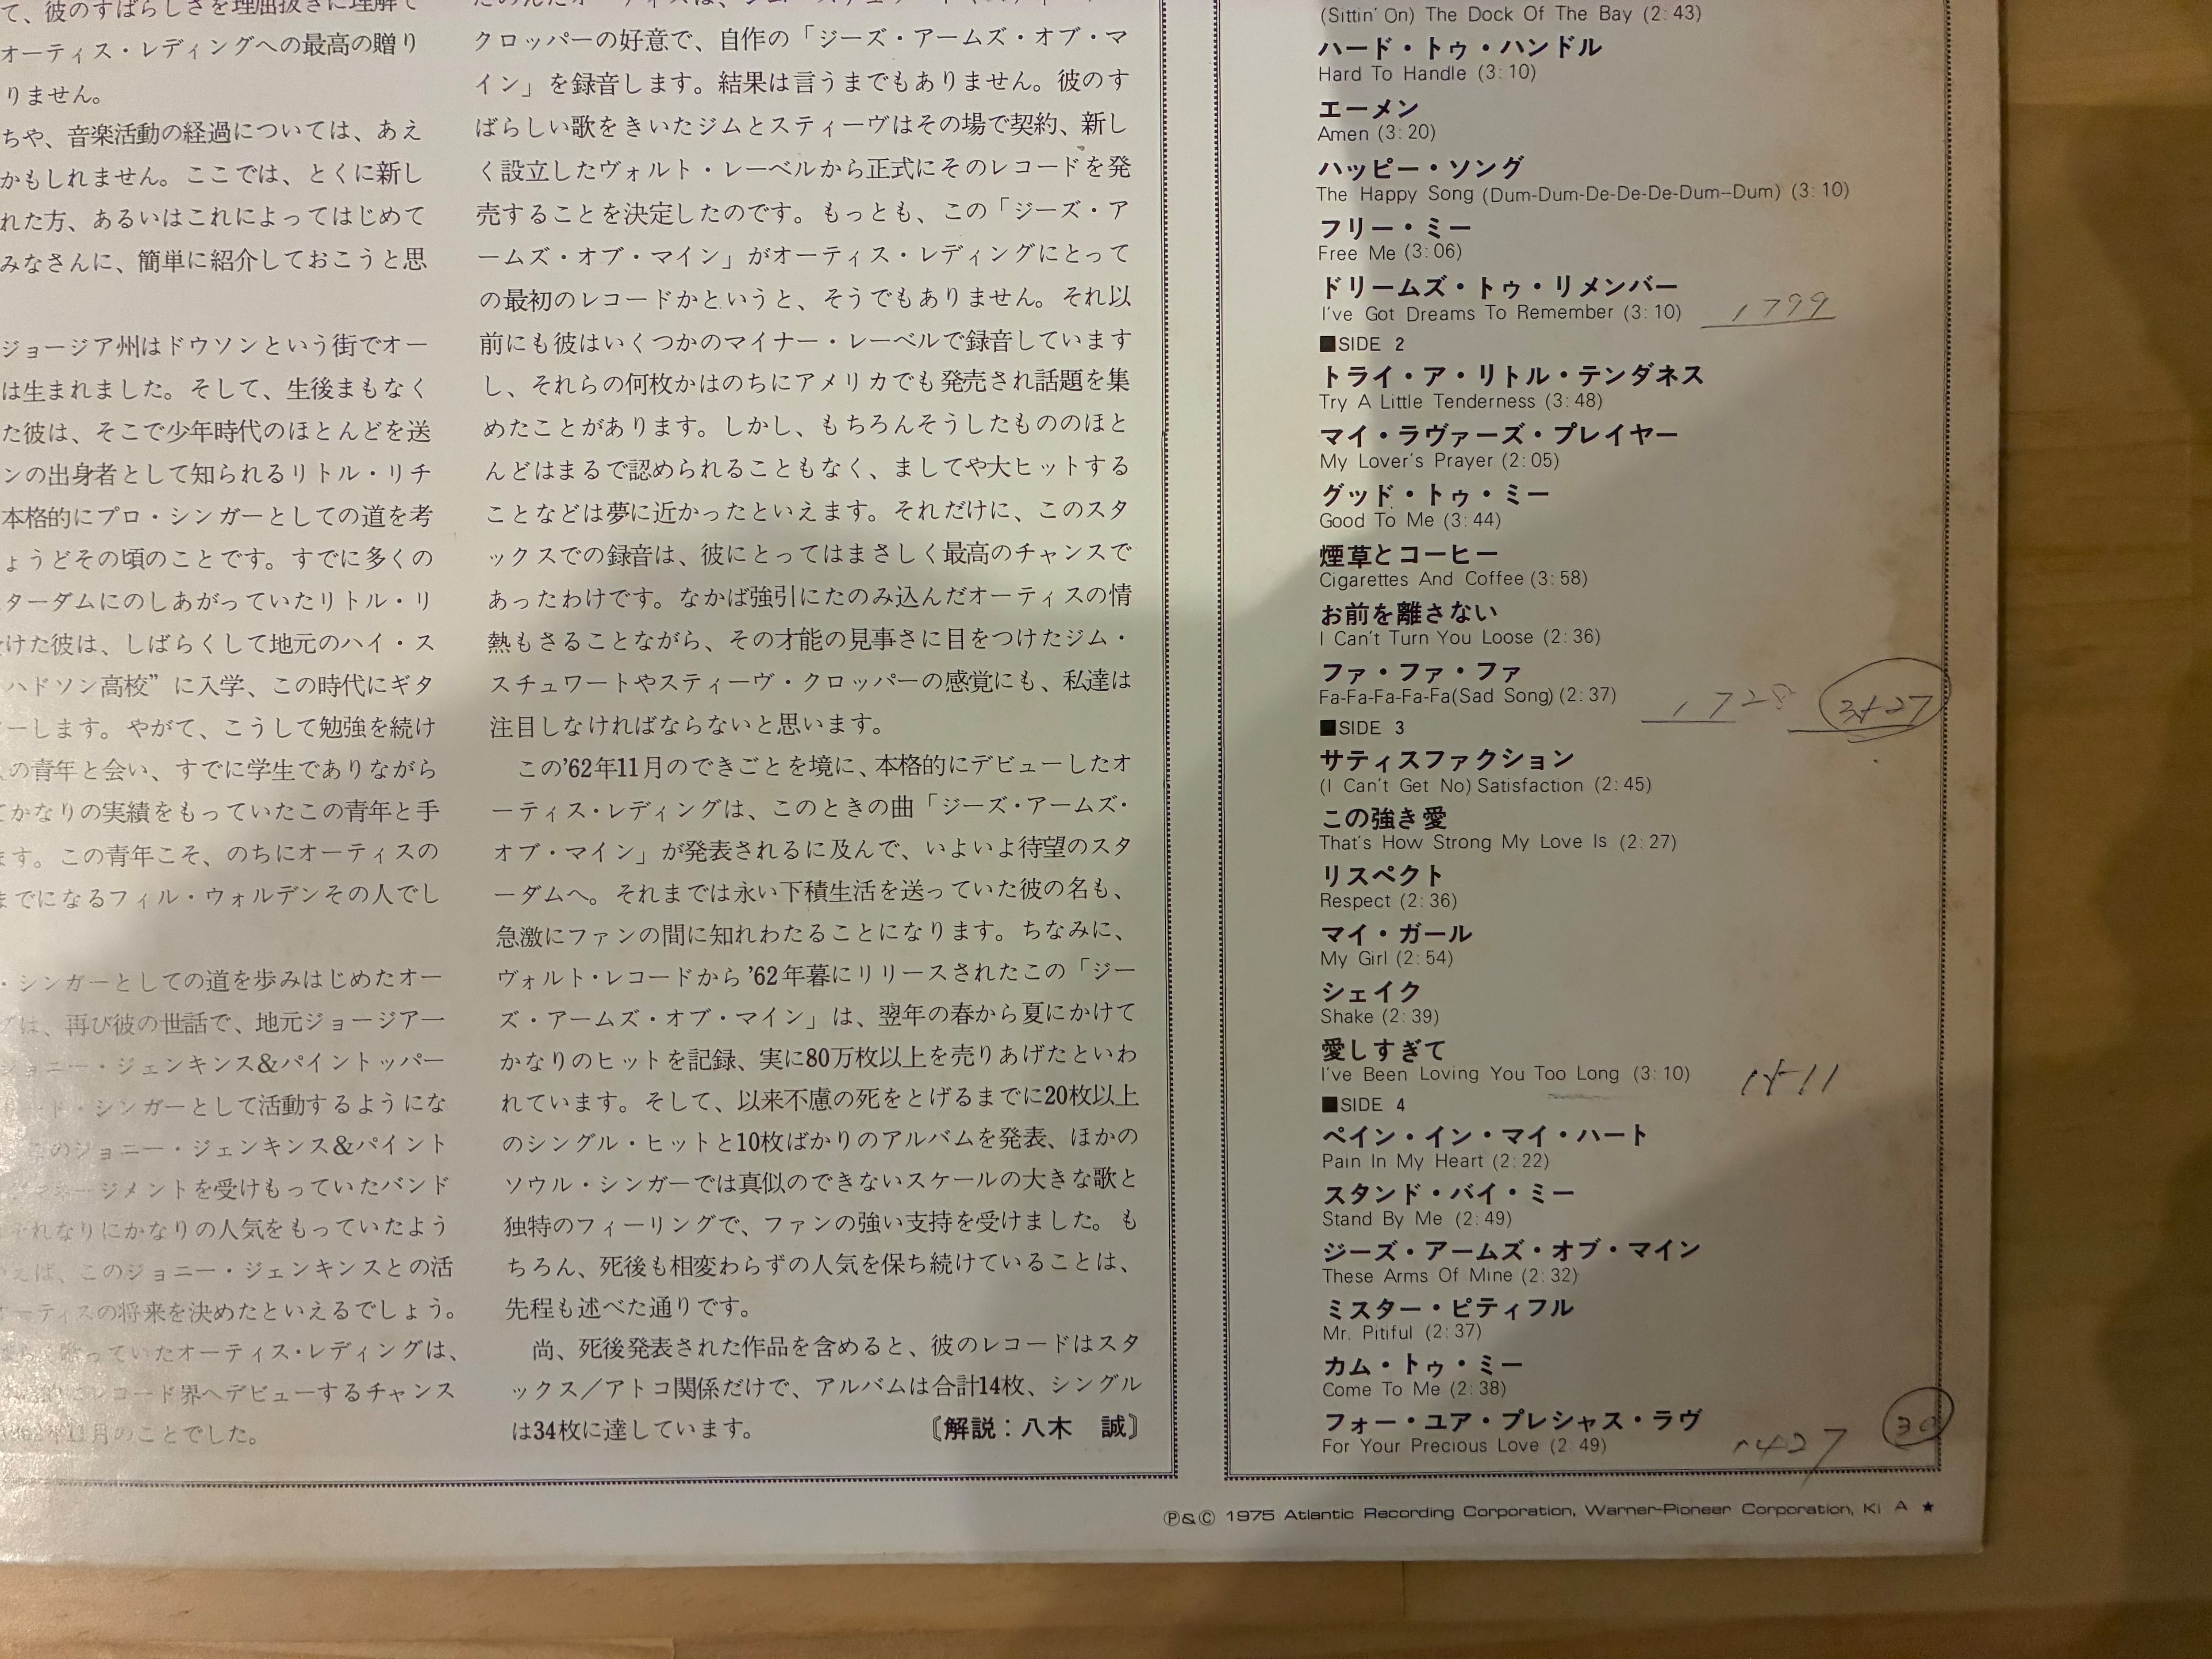 て、彼のすばらしさを理屈抜きに理解で
オーティス・レディングへの最高の贈り
りません。
ちや、音楽活動の経過については、あえ
かもしれません。ここでは、とくに新し
れた方、あるいはこれによってはじめて
みなさんに、簡単に紹介しておこうと思
ジョージア州はドウソンという街でオー
は生まれました。そして、生後まもなく
た彼は、そこで少年時代のほとんどを送
ンの出身者として知られるリトル・リチ
本格的にプロ・シンガーとしての道を考
ょうどその頃のことです。すでに多くの
ターダムにのしあがっていたリトル・リ
けた彼は、しばらくして地元のハイ・ス
ハドソン高校”に入学、この時代にギタ
ーします。やがて、こうして勉強を続け
の青年と会い、すでに学生でありながら
てかなりの実績をもっていたこの青年と手
ます。この青年こそ、のちにオーティスの
までになるフィル・ウォルデンその人でし
・シンガーとしての道を歩みはじめたオー
グは、再び彼の世話で、地元ジョージアー
ジョニー・ジェンキンス&パイントッパー
ード・シンガーとして活動するようにな
このジョニー・ジェンキンス&パイント
ージメントを受けもっていたバンド
それなりにかなりの人気をもっていたよう
えば、このジョニー・ジェンキンスとの活
オーティスの将来を決めたといえるでしょう。
歌っていたオーティス・レディングは、
レコード界へデビューするチャンス
年11月のことでした。
クロッパーの好意で、自作の「ジーズ・アームズ・オブ・マ
イン」を録音します。結果は言うまでもありません。彼のす
ばらしい歌をきいたジムとスティーヴはその場で契約、新し
く設立したヴォルト・レーベルから正式にそのレコードを発
売することを決定したのです。もっとも、この「ジーズ・ア
ームズ・オブ・マイン」がオーティス・レディングにとって
の最初のレコードかというと、そうでもありません。それ以
前にも彼はいくつかのマイナー・レーベルで録音しています
し、それらの何枚かはのちにアメリカでも発売され話題を集
めたことがあります。しかし、もちろんそうしたもののほと
んどはまるで認められることもなく、ましてや大ヒットする
ことなどは夢に近かったといえます。それだけに、このスタ
ックスでの録音は、彼にとってはまさしく最高のチャンスで
あったわけです。なかば強引にたのみ込んだオーティスの情
熱もさることながら、その才能の見事さに目をつけたジム・
スチュワートやスティーヴ・クロッパーの感覚にも、私達は
注目しなければならないと思います。
この’62年11月のできごとを境に、本格的にデビューしたオ
ーティス・レディングは、このときの曲「ジーズ・アームズ・
オブ・マイン」が発表されるに及んで、いよいよ待望のスタ
ーダムへ。それまでは永い下積生活を送っていた彼の名も、
急激にファンの間に知れわたることになります。ちなみに、
ヴォルト・レコードから’62年暮にリリースされたこの「ジー
ズ・アームズ・オブ・マイン」は、翌年の春から夏にかけて
かなりのヒットを記録、実に80万枚以上を売りあげたといわ
れています。そして、以来不慮の死をとげるまでに20枚以上
のシングル・ヒットと10枚ばかりのアルバムを発表、ほかの
ソウル・シンガーでは真似のできないスケールの大きな歌と
独特のフィーリングで、ファンの強い支持を受けました。も
ちろん、死後も相変わらずの人気を保ち続けていることは、
先程も述べた通りです。
尚、死後発表された作品を含めると、彼のレコードはスタ
ックス／アトコ関係だけで、アルバムは合計14枚、シングル
は34枚に達しています。
〘解説：八木　誠〙
(Sittin' On) The Dock Of The Bay (2:43)
ハード・トゥ・ハンドル
Hard To Handle (3:10)
エーメン
Amen (3:20)
ハッピー・ソング
The Happy Song (Dum-Dum-De-De-De-Dum--Dum) (3:10)
フリー・ミー
Free Me (3:06)
ドリームズ・トゥ・リメンバー
I've Got Dreams To Remember (3:10)
1799
■SIDE 2
トライ・ア・リトル・テンダネス
Try A Little Tenderness (3:48)
マイ・ラヴァーズ・プレイヤー
My Lover's Prayer (2:05)
グッド・トゥ・ミー
Good To Me (3:44)
煙草とコーヒー
Cigarettes And Coffee (3:58)
お前を離さない
I Can't Turn You Loose (2:36)
ファ・ファ・ファ
Fa-Fa-Fa-Fa-Fa(Sad Song) (2:37)
1728
■SIDE 3
サティスファクション
(I Can't Get No) Satisfaction (2:45)
この強き愛
That's How Strong My Love Is (2:27)
リスペクト
Respect (2:36)
マイ・ガール
My Girl (2:54)
シェイク
Shake (2:39)
愛しすぎて
I've Been Loving You Too Long (3:10)
■SIDE 4
ペイン・イン・マイ・ハート
Pain In My Heart (2:22)
スタンド・バイ・ミー
Stand By Me (2:49)
ジーズ・アームズ・オブ・マイン
These Arms Of Mine (2:32)
ミスター・ピティフル
Mr. Pitiful (2:37)
カム・トゥ・ミー
Come To Me (2:38)
フォー・ユア・プレシャス・ラヴ
For Your Precious Love (2:49)
1427
30
Ⓟ&Ⓒ 1975 Atlantic Recording Corporation, Warner-Pioneer Corporation, Ki A ★